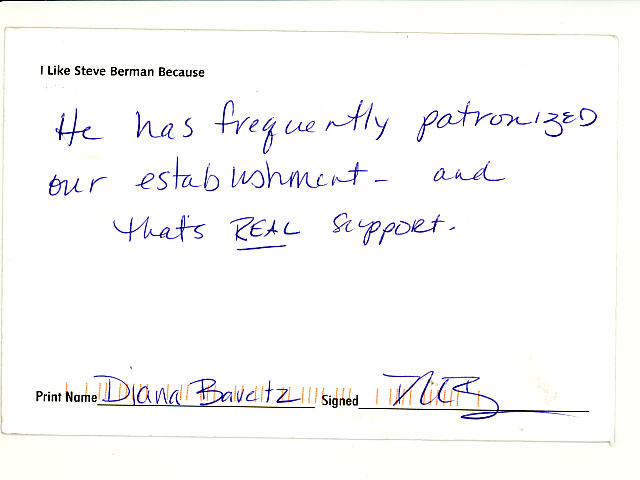 I Like Steve Berman Because
He has frequently patronized
our establishment - and
that's REAL support.
Print Name Diana Bavetz Signed